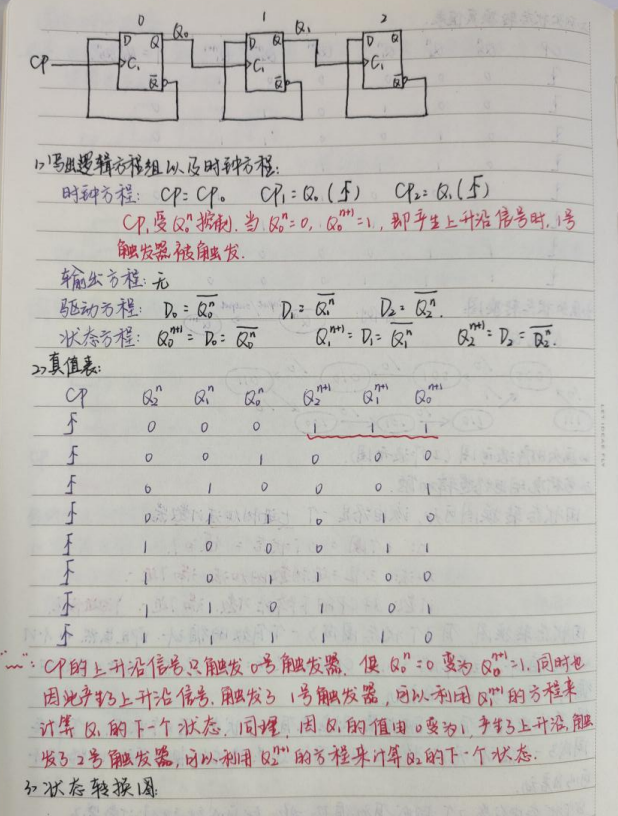 0 1 2
D Q Q₀ D Q Q₁ D Q
CP C₁ C₁ C₁
Q̅ Q̅ Q̅
1> 写出逻辑方程组以及时钟方程:
时钟方程: CP=CP₀ CP₁=Q₀(↑) CP₂=Q₁(↑)
CP₁受Q₀ⁿ控制. 当Q₀ⁿ=0, Q₀ⁿ⁺¹=1, 即产生上升沿信号时, 1号
触发器被触发.
输出方程: 无
驱动方程: D₀=Q̅₀ⁿ D₁=Q̅₁ⁿ D₂=Q̅₂ⁿ.
状态方程: Q₀ⁿ⁺¹=D₀=Q̅₀ⁿ Q₁ⁿ⁺¹=D₁=Q̅₁ⁿ Q₂ⁿ⁺¹=D₂=Q̅₂ⁿ.
2> 真值表:
CP Q₂ⁿ Q₁ⁿ Q₀ⁿ Q₂ⁿ⁺¹ Q₁ⁿ⁺¹ Q₀ⁿ⁺¹
↑ 0 0 0 1 1 1
↑ 0 0 1 0 0 0
↑ 0 1 0 0 0 1
↑ 0 1 1 0 1 0
↑ 1 0 0 0 1 1
↑ 1 0 1 1 0 0
↑ 1 1 0 1 0 1
↑ 1 1 1 1 1 0
"﹏": CP的上升沿信号只触发0号触发器, 使Q₀ⁿ=0变为Q₀ⁿ⁺¹=1. 同时也
因此产生了上升沿信号, 触发了1号触发器, 可以利用Q₁ⁿ⁺¹的方程来
计算Q₁的下一个状态. 同理, 因Q₁的值由0变为1, 产生了上升沿, 触
发了2号触发器, 可以利用Q₂ⁿ⁺¹的方程来计算Q₂的下一个状态.
3> 状态转换图: